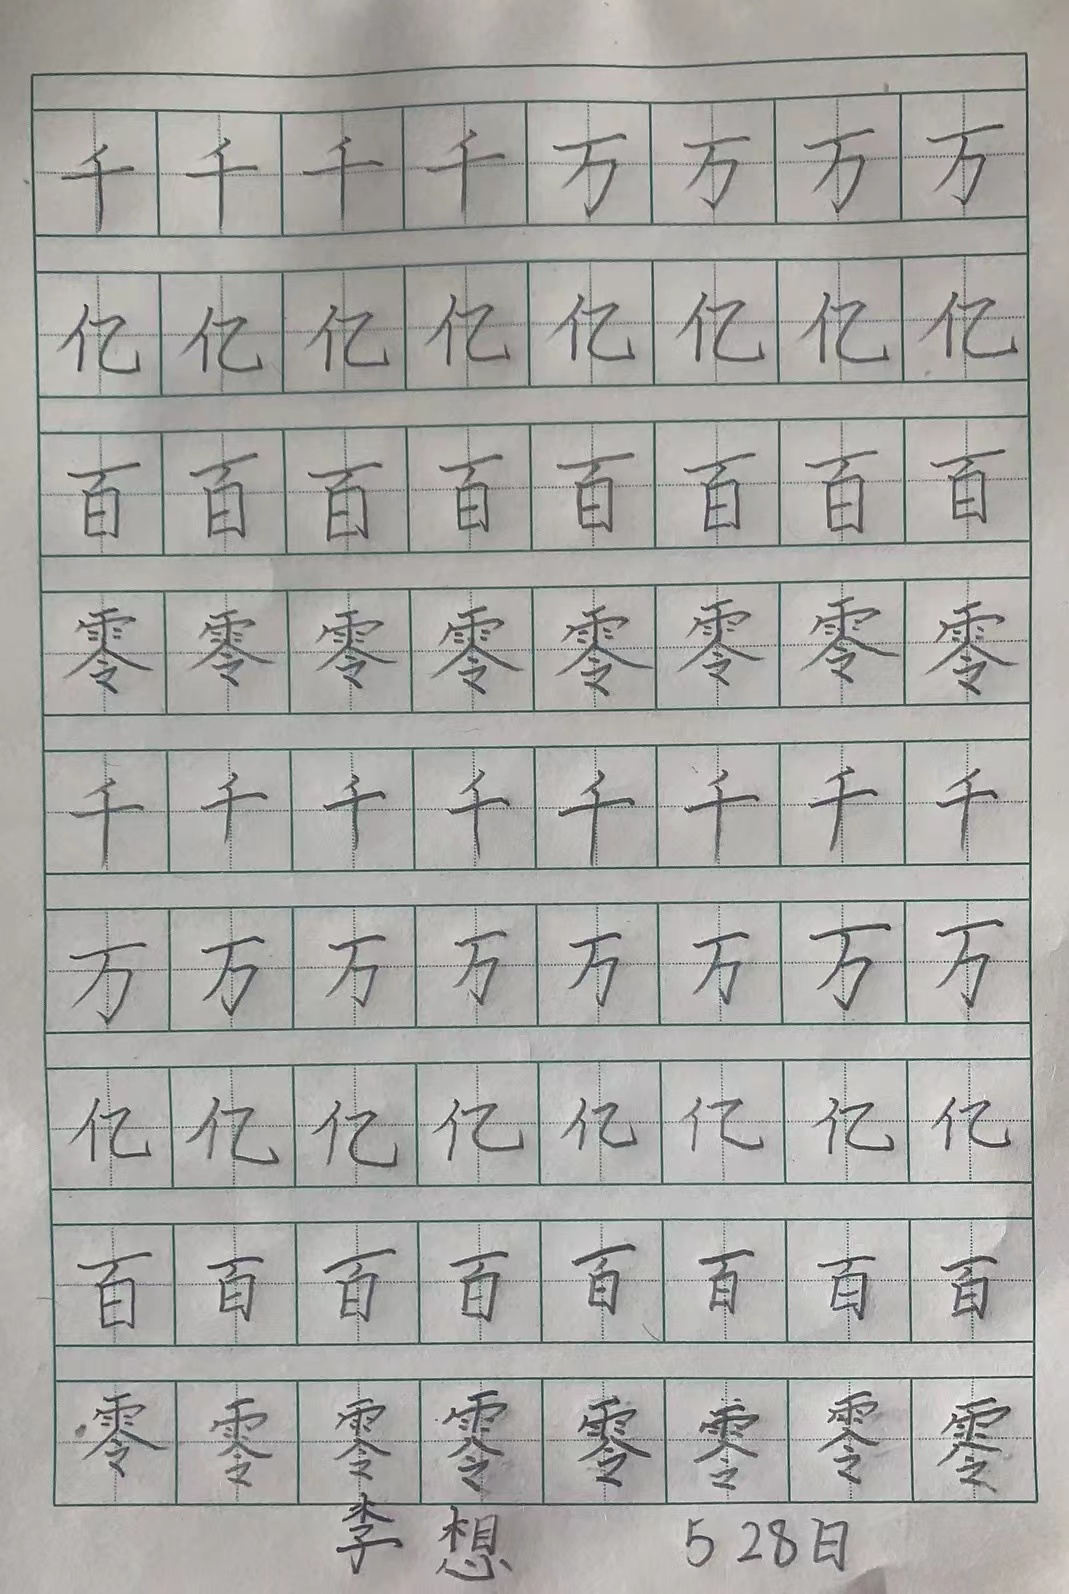 千千千千万万万万
亿亿亿亿亿亿亿亿
百百百百百百百百
零零零零零零零零
千千千千千千千千
万万万万万万万万
亿亿亿亿亿亿亿亿
百百百百百百百百
零零零零零零零零
李想 5 28日